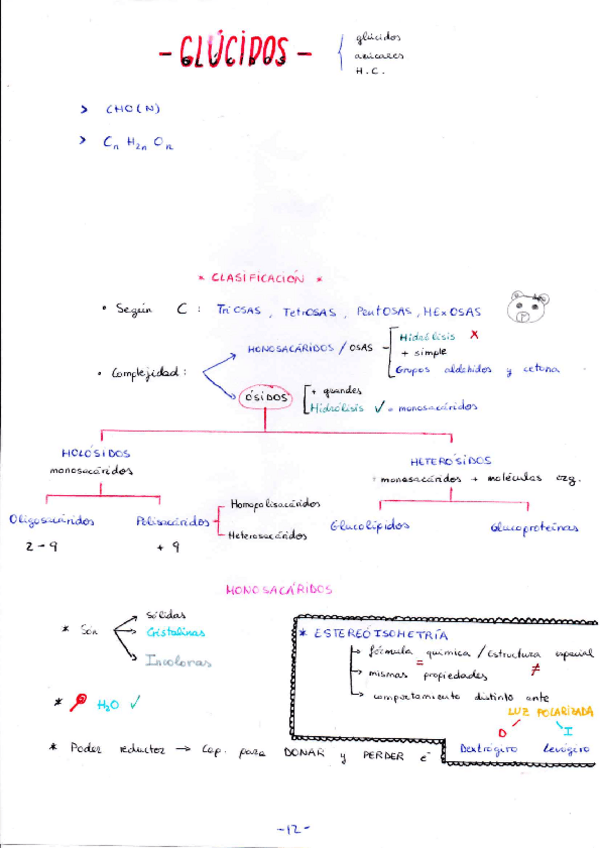 - GLÚCIDOS -
glúcidos
azúcares
H.C.
> CHO(N)
> Cn H2n On
* CLASIFICACIÓN *
• Según C : TriOSAS, TetrOSAS, PentOSAS, HExOSAS
• Complejidad:
MONOSACÁRIDOS / OSAS
Hidrólisis X
+ simple
Grupos aldehidos y cetona
ÓSIDOS
+ grandes
Hidrólisis ✓ = monosacáridos
HOLÓSIDOS
monosacáridos
HETERÓSIDOS
monosacáridos + moléculas org.
Oligosacáridos
2 - 9
Polisacáridos
+ 9
Homopolisacáridos
Heterosacáridos
Glucolípidos
Glucoproteínas
MONOSACÁRIDOS
* Són
Sólidas
Cristalinas
Incoloras
* H2O ✓
* Poder reductor → Cap. para DONAR y PERDER e-
* ESTEREÓISOMETRÍA
fórmula química / Estructura espacial
= ≠
mismas propiedades
comportamiento distinto ante
LUZ POLARIZADA
D I
Dextrógiro Levógiro
-12-